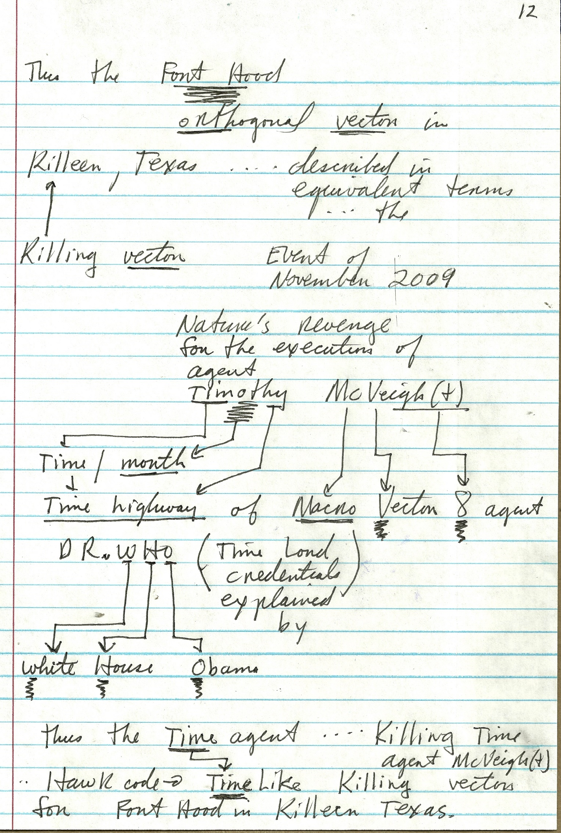 12
Thus the Font Hood
orthogonal vector in
Killeen, Texas .... described in
equivalent terms
... the
Killing vector Event of
November 2009
Nature's revenge
for the execution of
agent
Timothy McVeigh(t)
Time / month
Time highway of Macro Vector 8 agent
DR. WHO (Time Lord
credentials
explained
by
White House Obama
thus the Time agent .... Killing Time
agent McVeigh(t)
.. Hawk code → TimeLike Killing vector
for Font Hood in Killeen Texas.